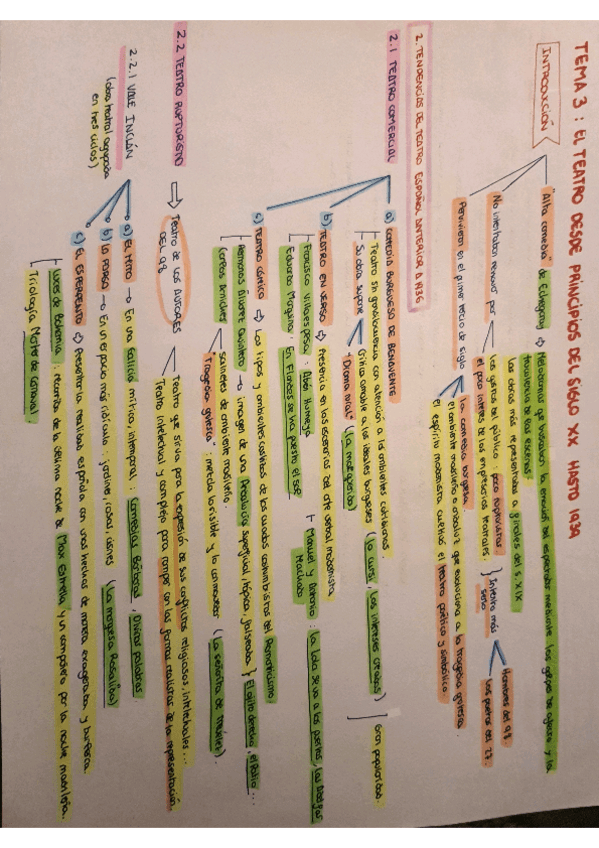 TEMA 3: EL TEATRO DESDE PRINCIPIOS DEL SIGLO XX HASTA 1939
INTRODUCCIÓN
"Alta comedia" de Echegaray ⇒ Melodramas que buscaban la emoción del espectador mediante los golpes de efecto y la
truculencia de las escenas.
Las obras más representadas a finales del S. XIX
No intentaban renovar por
los gustos del público: poco rupturistas
el poco interés de los empresarios teatrales.
} Intento más serio
Hombres del 98
Los poetas del 27.
Perviven en el primer tercio de siglo
La comedia burguesa
el ambiente madrileño o andaluz que evoluciona a la tragedia grotesca.
el espíritu modernista cultivó el teatro poético y simbólico.
2. TENDENCIAS DEL TEATRO ESPAÑOL ANTERIOR A 1936
2.1 TEATRO COMERCIAL
a) COMEDIA BURGUESA DE BENAVENTE
Teatro sin grandilocuencia con atención a los ambientes cotidianos.
Su obra supone
Crítica amable a los ideales burgueses (Lo cursi, Los intereses creados)
"Drama rural" (La malquerida)
} Gran popularidad
b) TEATRO EN VERSO ⇒ Presencia en los escenarios del arte verbal modernista
Francisco Villaespesa: Aben Humeya
Eduardo Marquina: En Flandes se ha puesto el sol
Manuel y Antonio Machado: La Lola se va a los puertos,
c) TEATRO CÓMICO ⇒ Los tipos y ambientes castizos de los cuadros costumbristas del Romanticismo
Hermanos Álvarez Quintero → imagen de una Andalucía superficial, tópica, falseada } El ojito derecho, El patio...
Carlos Arniches
Sainetes de ambiente madrileño.
"Tragedia grotesca": mezcla lo risible y lo conmovedor (La señorita de Trévelez).
2.2 TEATRO RUPTURISTA
⇒ Teatro de los AUTORES DEL 98
Teatro que sirva para la expresión de sus conflictos religiosos, intelectuales...
Teatro intelectual y complejo para romper con las formas realistas de la representación.
2.2.1 VALLE INCLÁN
(obra teatral agrupada
en tres ciclos)
a) EL MITO → En una Galicia mítica, intemporal: Comedias Bárbaras, Divinas palabras.
b) LA FARSA → En un espacio más ridículo: jardines, rosas, cisnes (La marquesa Rosalinda)
c) EL ESPERPENTO ⇒ Presentar la realidad española con unos hechos de manera exagerada y burlesca.
Luces de Bohemia: recorrido de la última noche de Max Estrella y un compañero por la noche madrileña.
Triología Martes de Carnaval